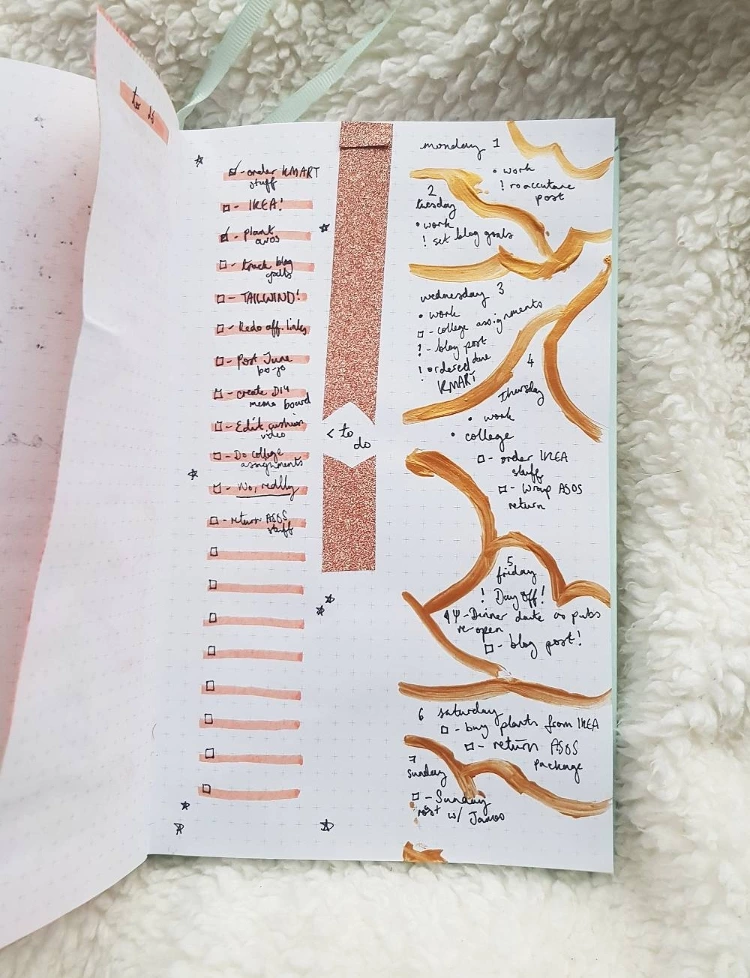 to do
☑ - order KMART
stuff
☐ - IKEA!
☑ - plant
avos
☐ - track blog
goals
☐ - TAILWIND!
☐ - Redo aff. links
☐ - Post June
bo-jo
☐ - create DIY
meme board
☐ - Edit cushion
video
☐ - Do college
assignments
☐ - No, really
☐ - return ASOS
stuff
< to
do
monday 1
• work
! roaccutane
post
2
tuesday
• work
! set blog goals
wednesday 3
• work
☐ - college assignments
! - blog post
! ordered
KMART
4
Thursday
• work
• college
☐ - order IKEA
stuff
☐ - Wrap ASOS
return
5
friday
! Day off!
- Dinner date as pubs
re-open
☐ - blog post!
6 saturday
☐ - buy plants from IKEA
☐ - return ASOS
package
7
sunday
☐ - Sunday
roast w/